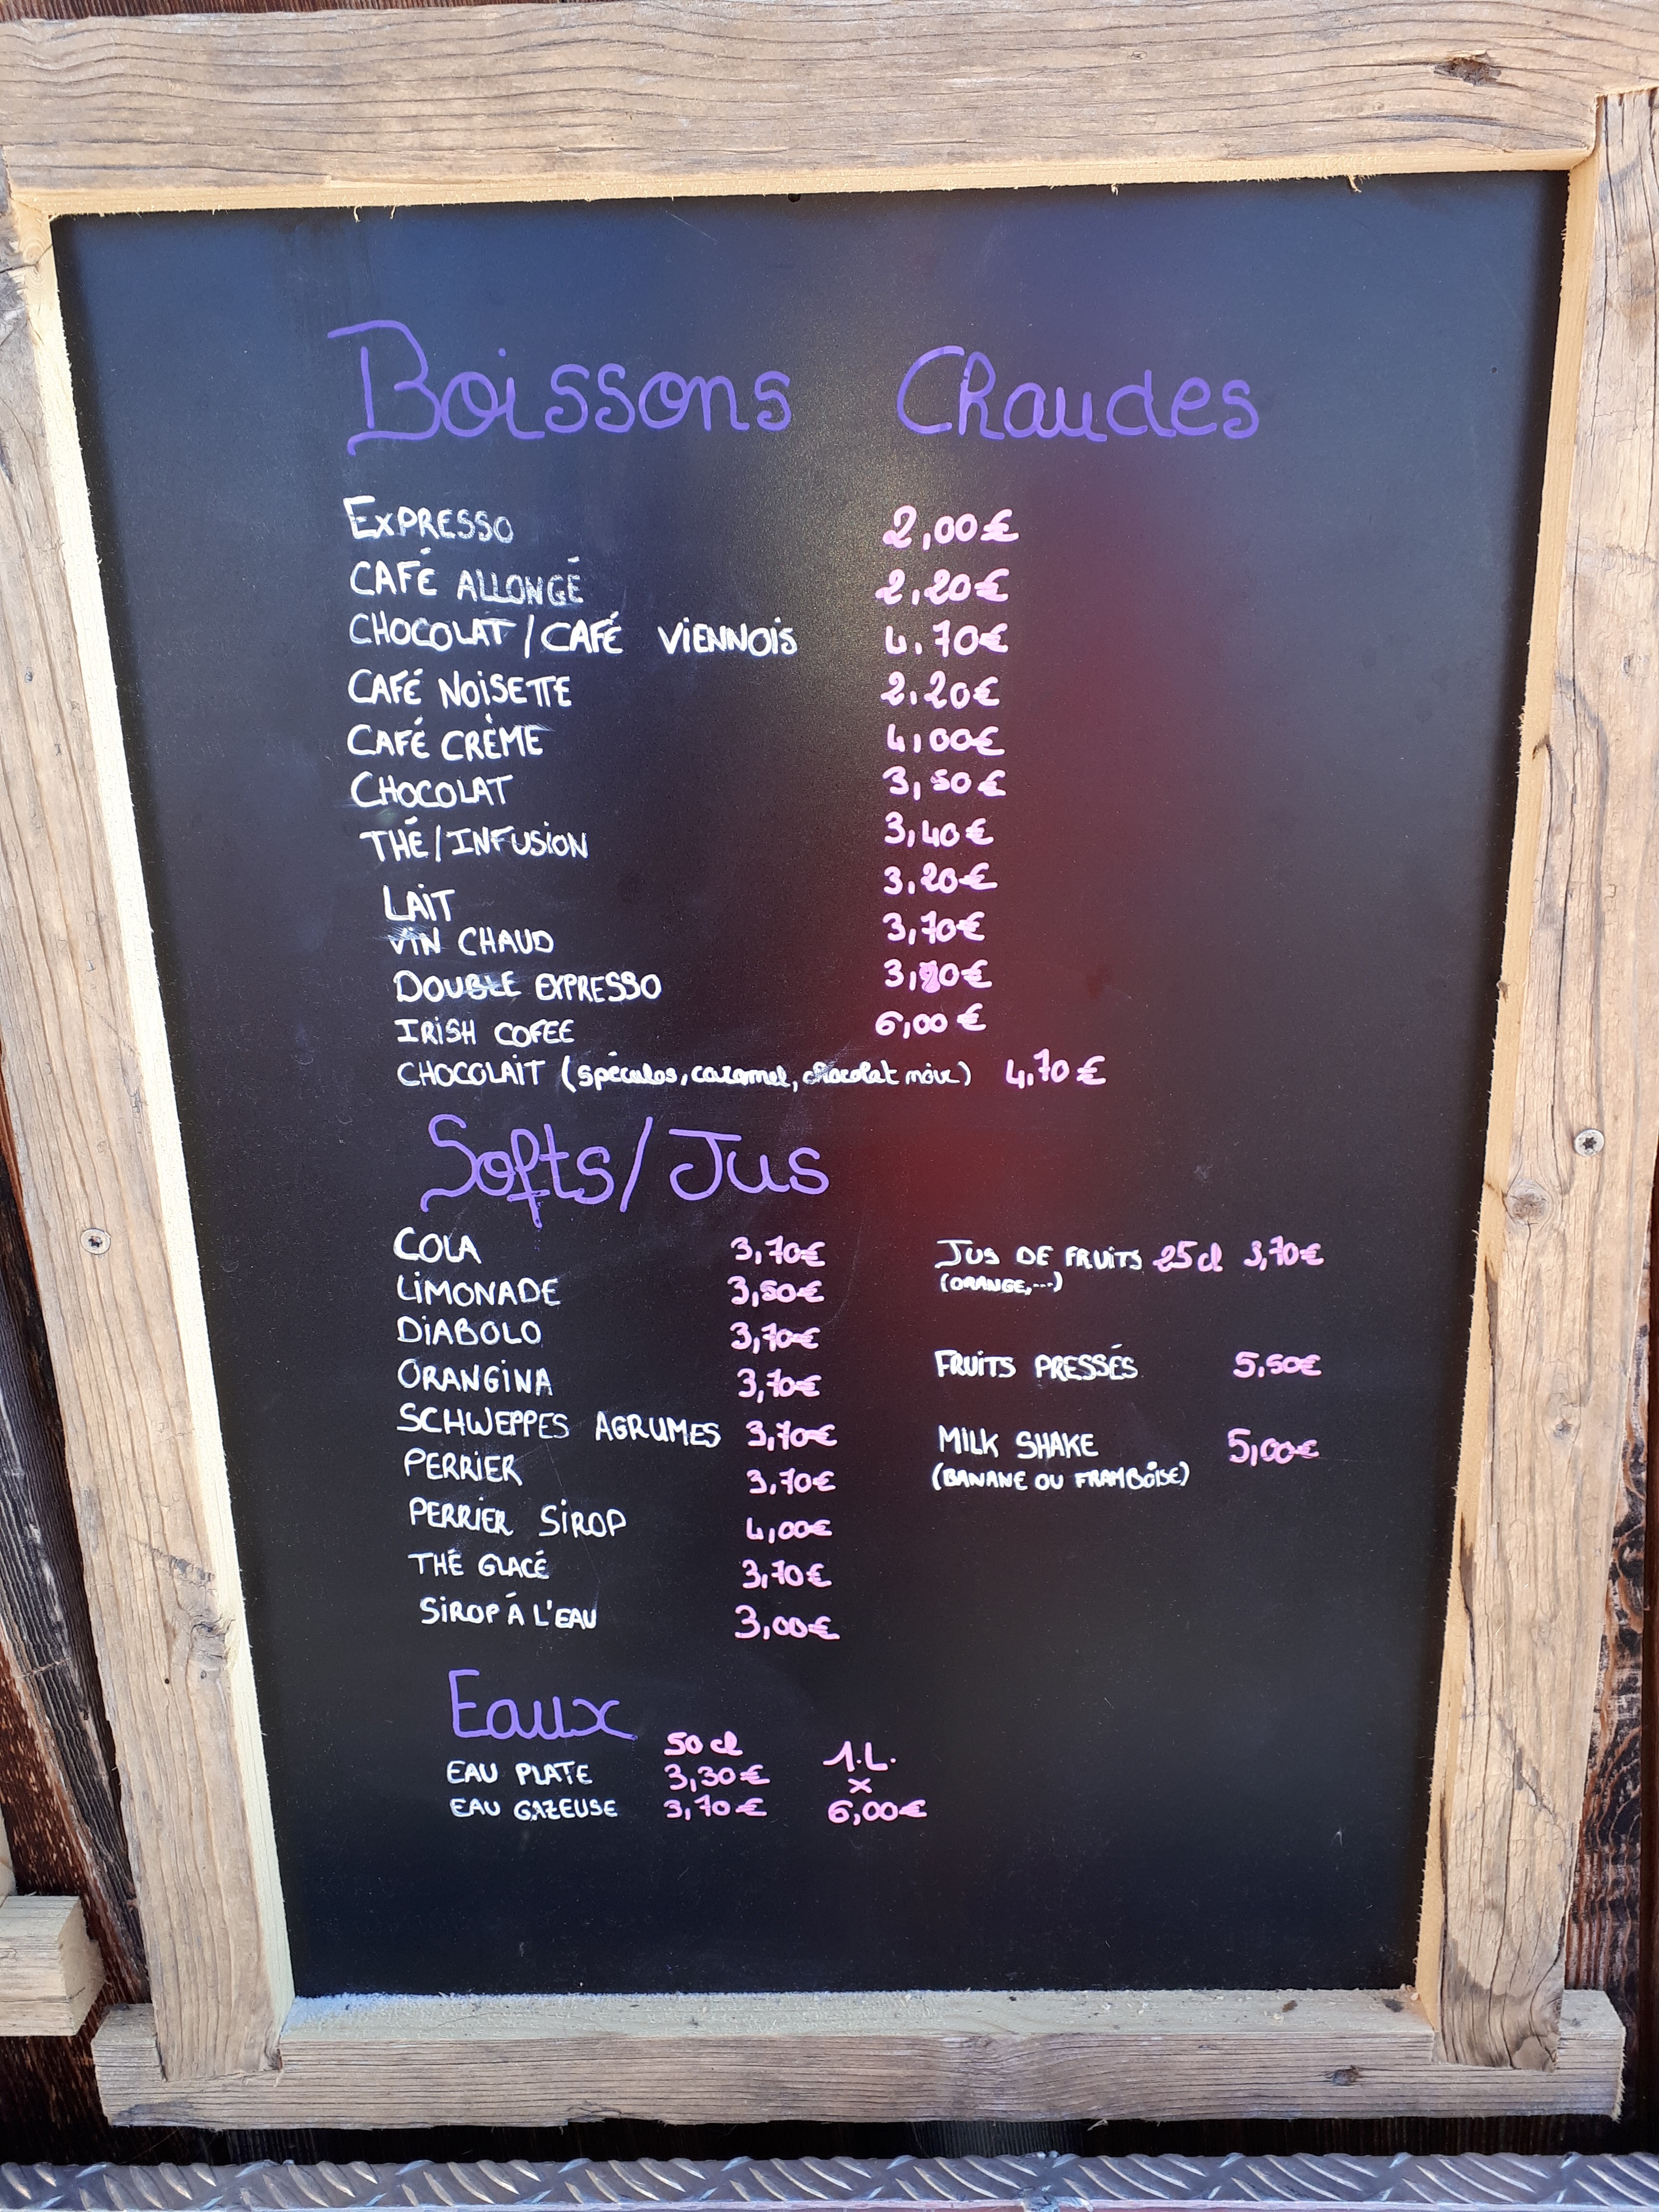 Boissons Chaudes
EXPRESSO 2,00€
CAFÉ ALLONGÉ 2,20€
CHOCOLAT / CAFÉ VIENNOIS 4,70€
CAFÉ NOISETTE 2,20€
CAFÉ CRÈME 4,00€
CHOCOLAT 3,50€
THÉ/INFUSION 3,40€
LAIT 3,20€
VIN CHAUD 3,70€
DOUBLE EXPRESSO
IRISH COFEE 6,00€
CHOCOLAIT (spéculos, caramel, chocolat noir) 4,70€
Softs/Jus
COLA 3,70€
LIMONADE 3,50€
DIABOLO 3,70€
ORANGINA 3,70€
SCHWEPPES AGRUMES 3,70€
PERRIER 3,70€
PERRIER SIROP 4,00€
THÉ GLACÉ 3,70€
SIROP À L'EAU 3,00€
JUS DE FRUITS 25cl 3,70€
(ORANGE,...)
FRUITS PRESSÉS 5,50€
MILK SHAKE 5,00€
(BANANE OU FRAMBOISE)
Eaux
50cl 1.L.
EAU PLATE 3,30€ x
EAU GAZEUSE 3,70€ 6,00€